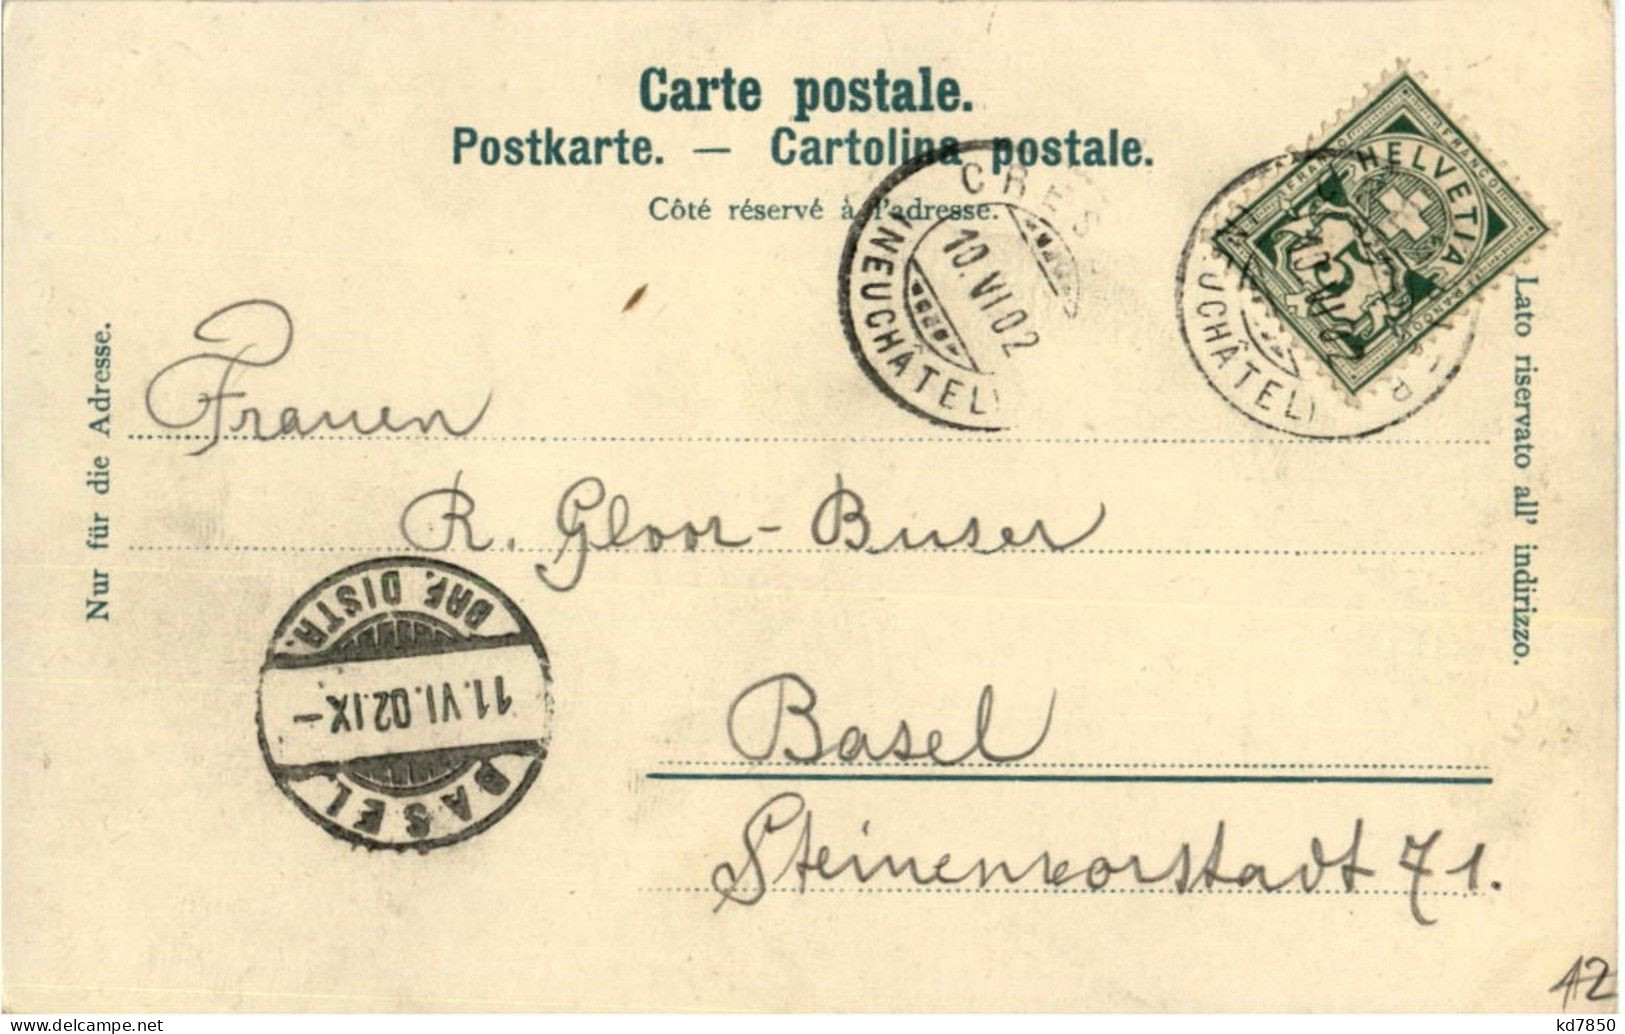 Carte postale.
Postkarte. — Cartolina postale.
Côté réservé à l'adresse.
(NEUCHÂTEL)
10.VI 02
HELVETIA
FRANCO
FRANCO
FRANCO
5
UCHÂTEL)
10 VI 02
Nur für die Adresse.
Lato riservato all' indirizzo.
Frauen
R. Gloor-Buser
Basel
Steinenvorstadt 71.
BASEL
11.VI.02.IX-
BRF. DISTR.
12
kd7850